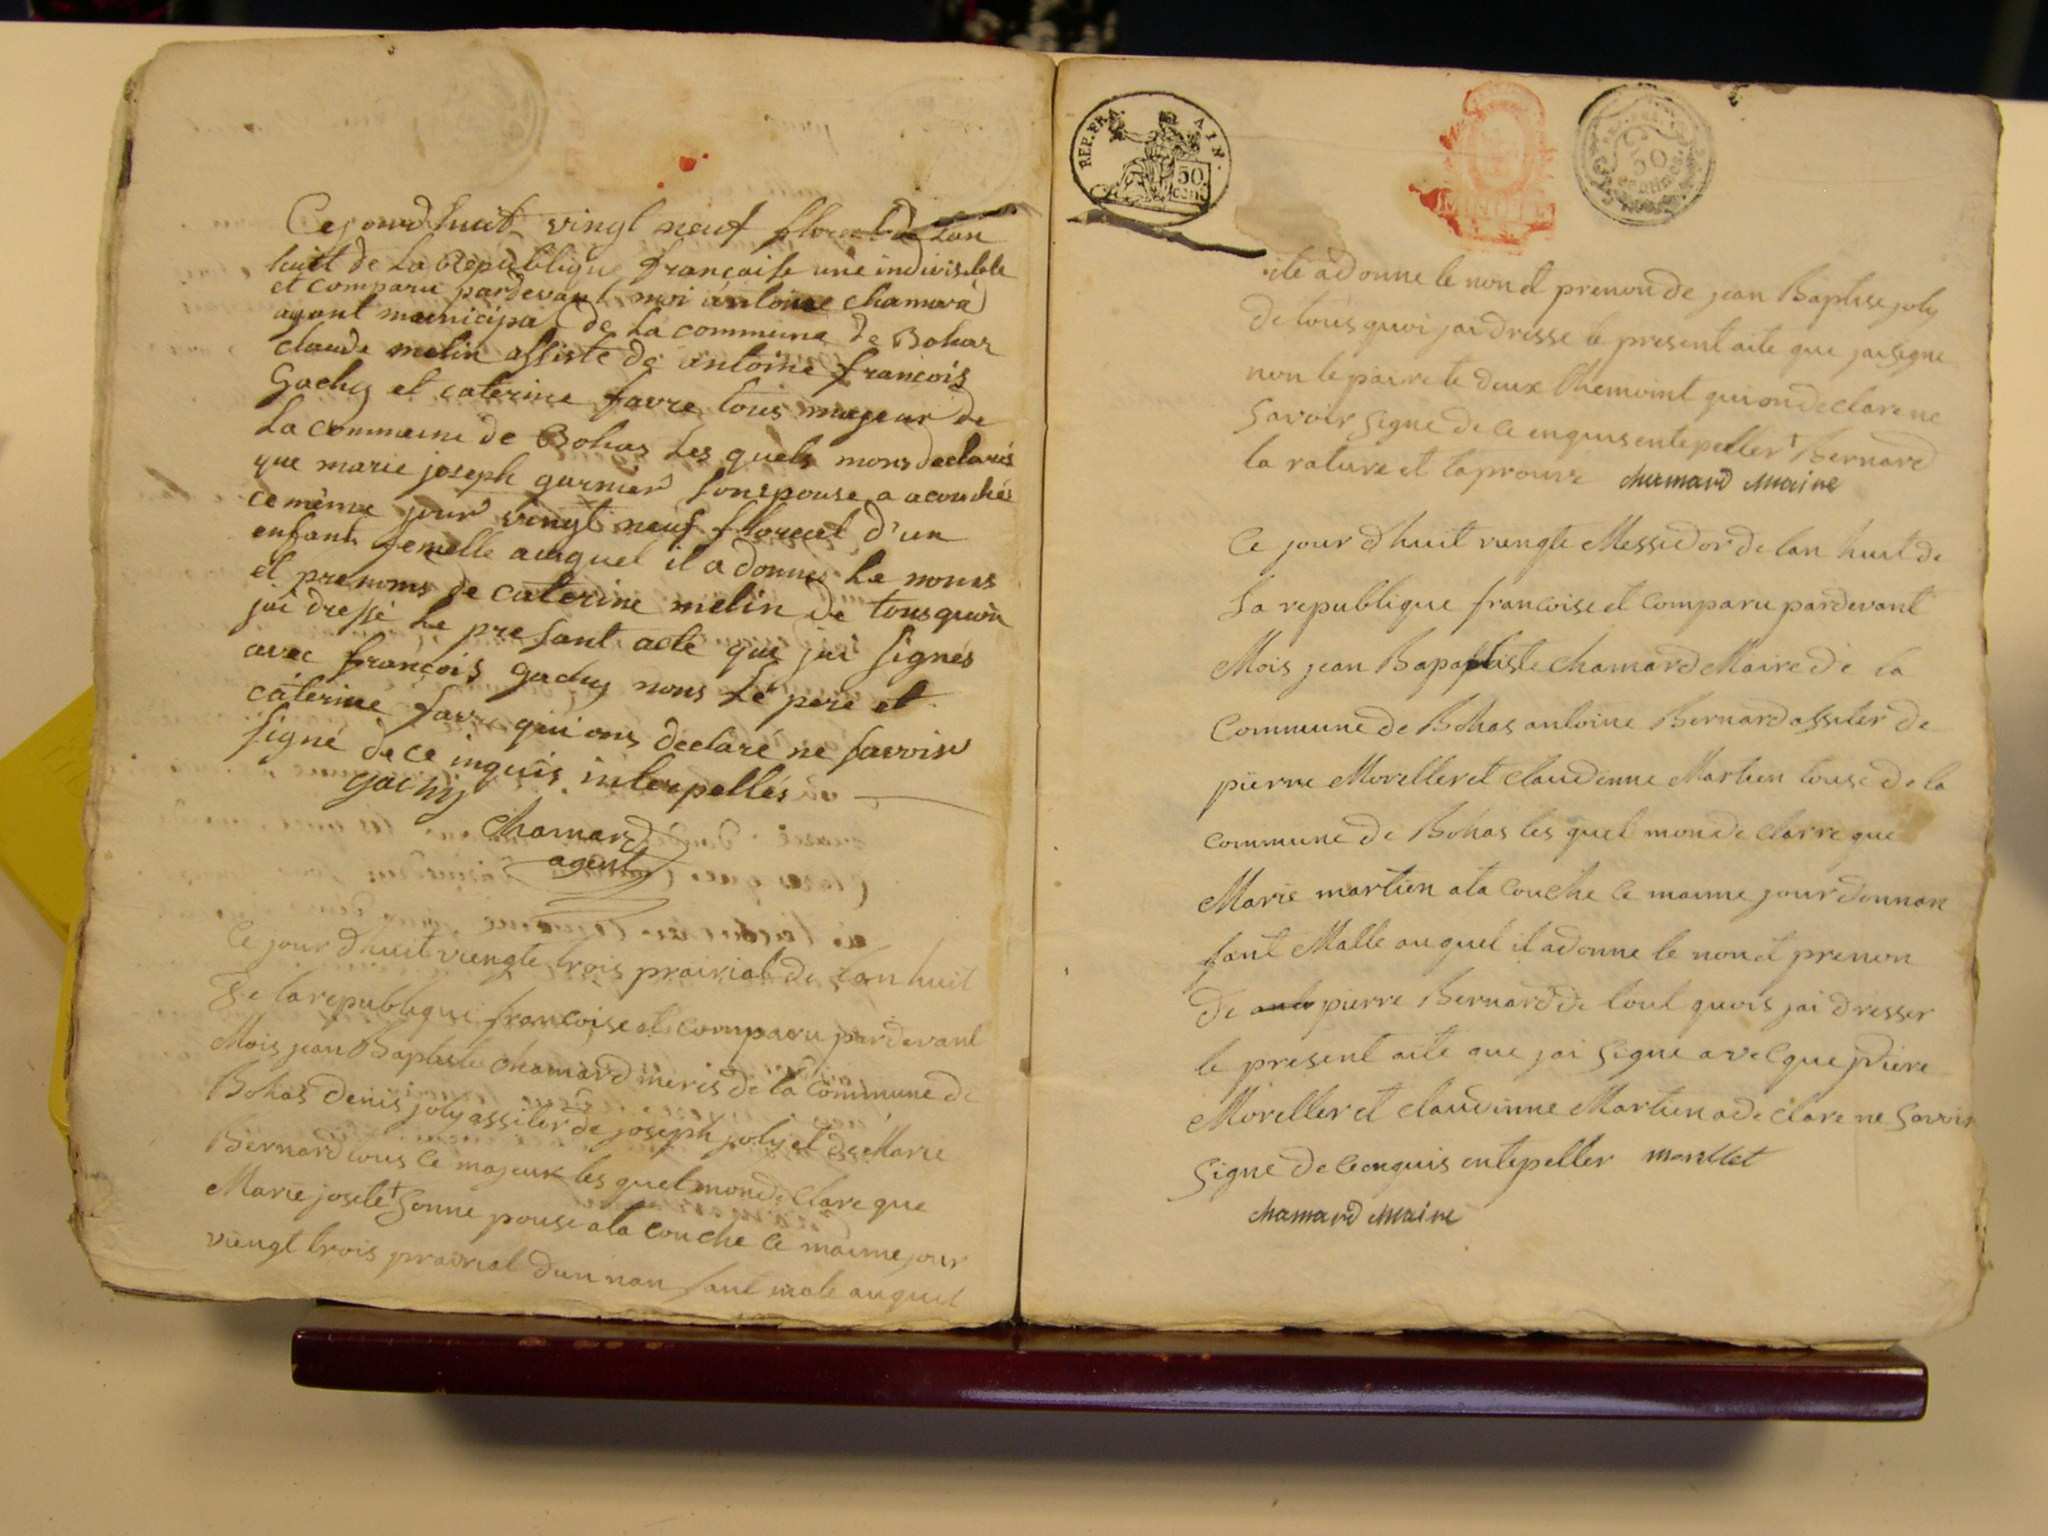 Cejourdhuit vingt neuf floreal de Lan
huit de La Republique françaiſe une indivisibble
et comparu pardevant moi antoine chamard
agant municipal de La commune de Bohas
claude melin aſſisté de antoine françois
Gachy et caterine favre tous majeur de
La commune de Bohas Les quels mons declarés
que marie joseph garnier ſon epouse a acouchés
ce même jour vingt neuf floreal d'un
enfant femelle auquel il a donner Le noms
et prenoms de caterine melin de tous quoi
jai dreſſé Le preſant acte que jai ſignés
avec françois gachy nons Le pere et
caterine favre qui ons declaré ne ſavoir
ſigné de ce inquis interpellés
gachy
chamard
agent
Ce jour dhuit viengte trois prairial de Lan huit
De la republique francoise et comparu pardevant
Mois jean Baptiste chamard meris de la Commune de
Bohas denis joly assiter de joseph joly et de Marie
Bernard tous ce majeur les quel monde clare que
Marie josete + Sonne pouse ata couche ce maime jour
viengt trois prairial dun nan fant male auquel
ile adonne le non et prenon de jean Baptise joly
de tous quoi jai dresse le present aite que jai signe
non le paire te deux themoint qui on de clare ne
Savoir signe de ce enquis entepeller + Bernard
la rature et taprouve chamard maire
Ce jour dhuit viengte Messidor de lan huit de
La republique francoise et comparu pardevant
Mois jean Bapaptiste chamard Maire de la
Commune de Bohas antoine Bernard assiter de
pierre Morelleret claudinne Martien touse de la
commune de Bohas les quel monde clarre que
Marie martien ata couche ce maime jour dunnan
fant Malle auquel il adonne le non et prenon
de pierre Bernard de tout quois jai dresser
le present aite que jai signe avecque piere
Moreller et claudinne Martien a de clare ne Savoir
Signe de ce enquis entepeller morellet
chamard maire
REP. FRA
AIN.
50
CENT
MINUTE
50
centimes